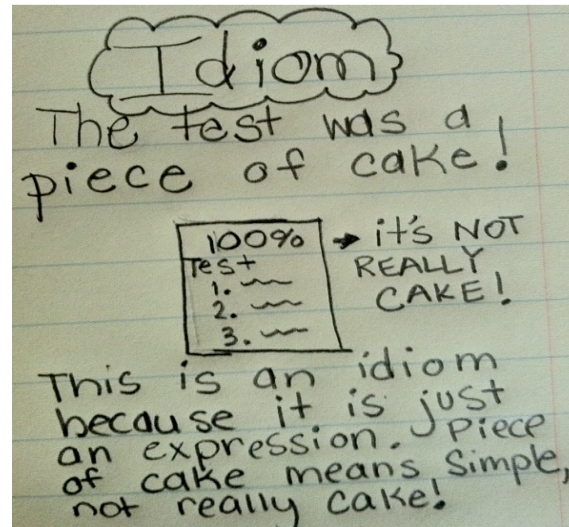 Idiom
The test was a
piece of cake!
100%
Test
1.
2.
3.
→ it's NOT
REALLY
CAKE!
This is an idiom
because it is just
an expression. Piece
of cake means simple,
not really cake!